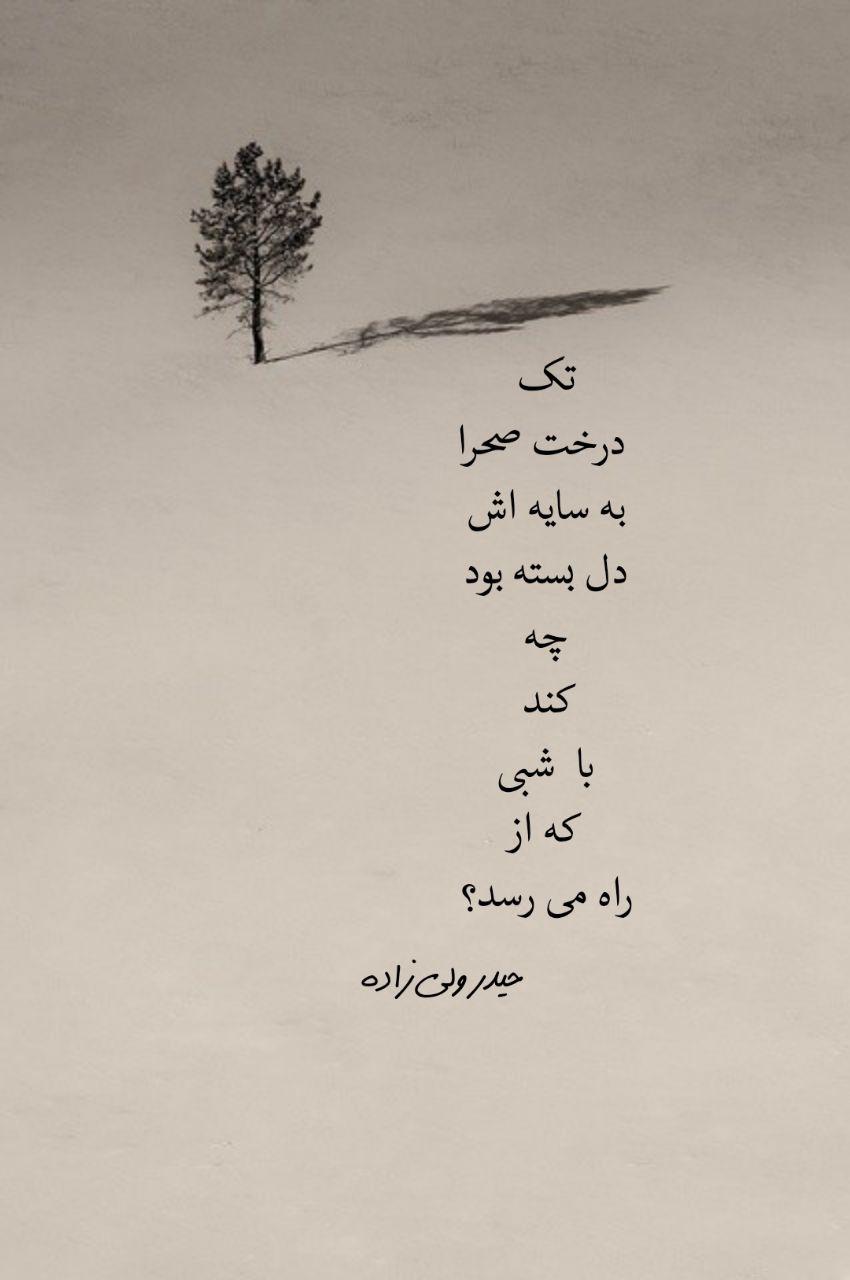 تک
درخت صحرا
به سایه اش
دل بسته بود
چه
کند
با شبی
که از
راه می رسد؟
حیدر ولی زاده